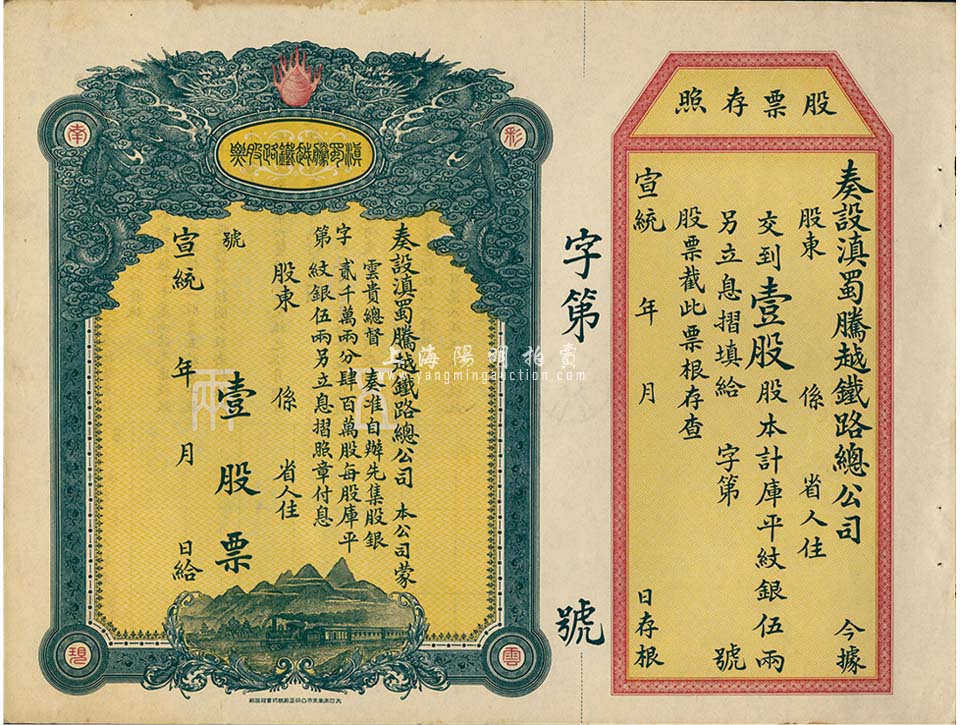 股票存照
奏設滇蜀騰越鐵路總公司 今據
股東 係 省人住
交到壹股股本計庫平紋銀伍兩
另立息摺填給 字第 號
股票截此票根存查
宣統 年 月 日存根
字第 號
滇蜀騰越鐵路股票
彩
南
雲
現
奏設滇蜀騰越鐵路總公司 本公司蒙
雲貴總督 奏准自辦先集股銀
貳千萬兩分肆百萬股每股庫平
紋銀伍兩另立息摺照章付息
字第
股東 係 省人住
號 壹股票
宣統 年 月 日給
伍兩
上海陽明拍賣
www.yangmingauction.com